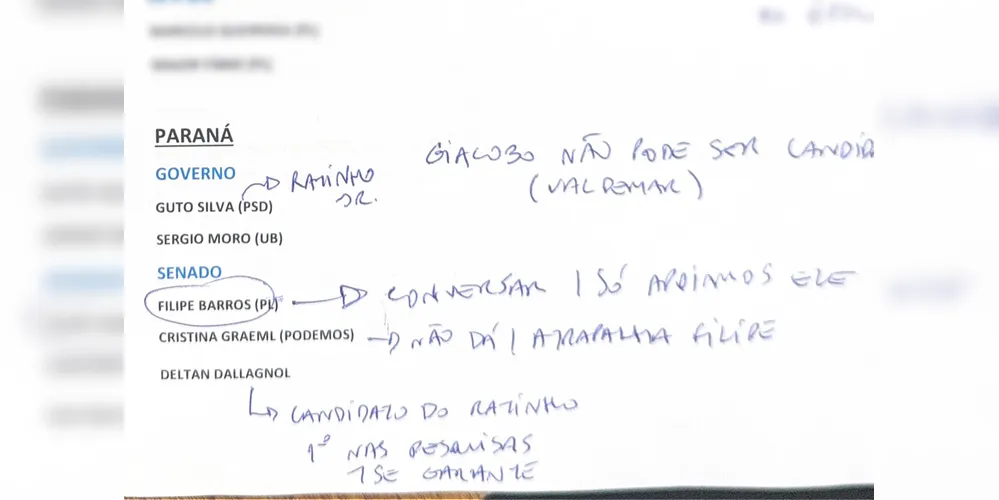 PARANÁ
GIACOBO NÃO PODE SER CANDID
(VALDEMAR)
GOVERNO
RATINHO
JR.
GUTO SILVA (PSD)
SERGIO MORO (UB)
SENADO
FILIPE BARROS (PL) CONVERSAR / SÓ APOIAMOS ELE
CRISTINA GRAEML (PODEMOS) NÃO DÁ / ATRAPALHA FILIPE
DELTAN DALLAGNOL
CANDIDATO DO RATINHO
1º NAS PESQUISAS
SE GARANTE